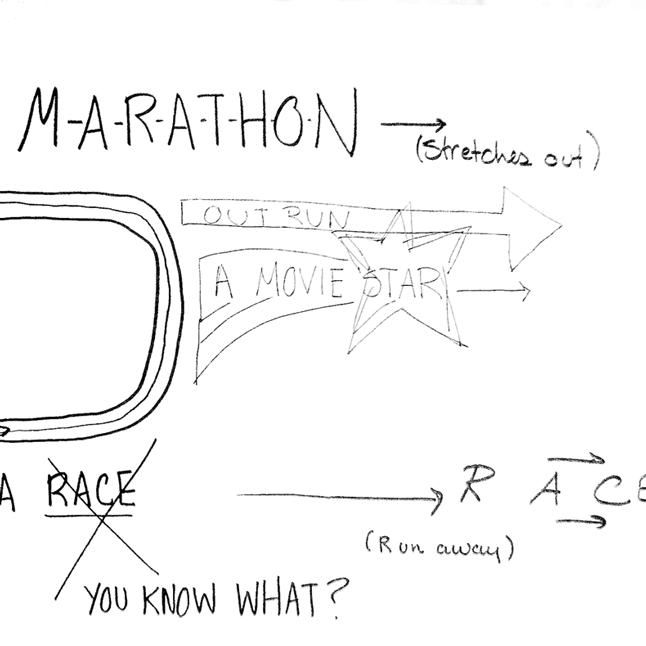 M-A-R-A-T-H-O-N
(Stretches out)
OUT RUN
A MOVIE STAR
A RACE
R A C E
(Run away)
YOU KNOW WHAT?